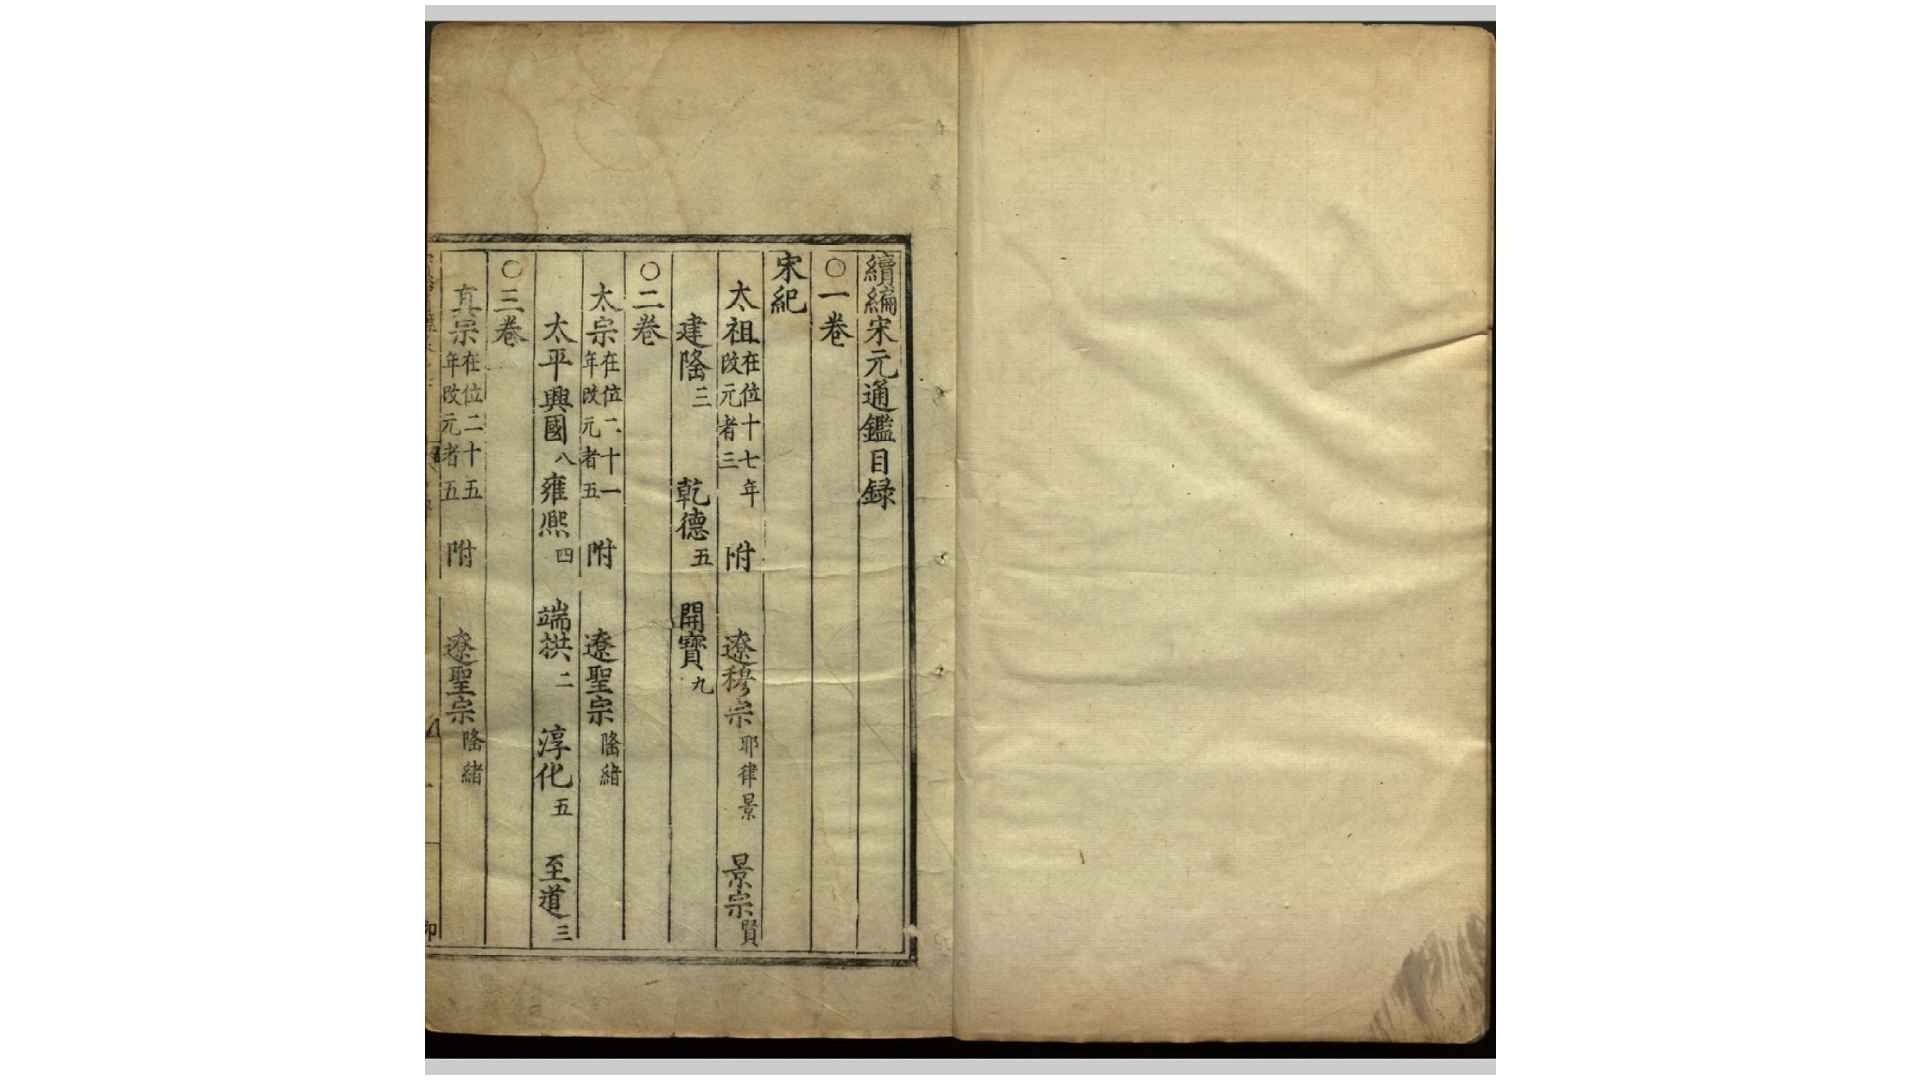 續編宋元通鑑目録
〇一卷
宋紀
太祖在位十七年改元者三 附 遼穆宗耶律景 景宗賢
建隆三 乾德五 開寶九
〇二卷
太宗在位二十一年改元者五 附 遼聖宗隆緒
太平興國八 雍熙四 端拱二 淳化五 至道三
〇三卷
真宗在位二十五年改元者五 附 遼聖宗隆緒